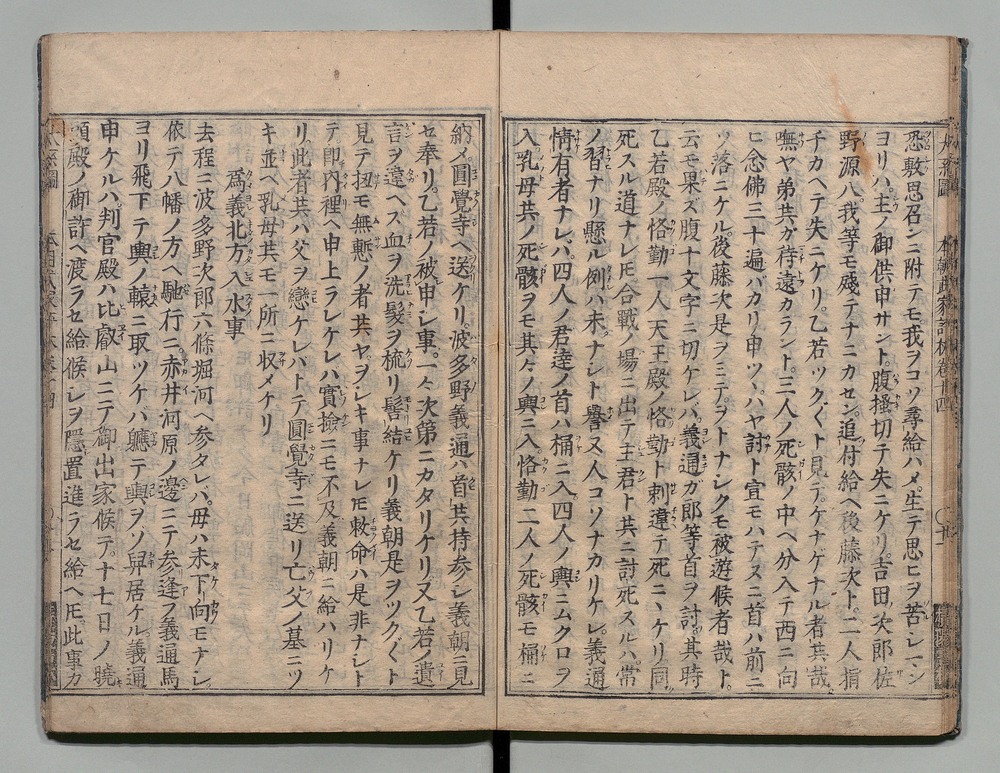 恐敷思召ンニ附テモ我ヲコソ尋給ハメ生テ思ヒヲ苦シレニン
ヨリハ主ノ御供申サント腹搔切テ失ニケリ吉田ノ次郎佐
野源八我等モ殘テナニカセン追付給ヘ後藤次ト二人指
チカヘテ失ニケリ乙若ツクヽト見テケナケナル者共哉
嘸ヤ弟共ガ待遠カラント三人ノ死骸ノ中ヘ分入テ西ニ向
ヒ念佛三十遍バカリ申ツヽハヤ討ト宣モハテスニ首ハ前ニ
ソ落ニケル後藤次是ヲミテヲトナシクモ被遊候者哉ト
云モ果ズ腹十文字ニ切ケレバ義通ガ郎等首ヲ討其時
乙若殿ノ恪勤一人天王殿ノ恪勤ト刺違テ死ニヽケリ同
死スル道ナレ𪜈合戰ノ場ニ出テ主君ト共ニ討死スルハ常
ノ習ナリ懸ル例ハ未ナシト譽ヌ人コソナカリケレ義通
情有者ナレバ四人ノ君達ノ首ハ桶ニ入四人ノ輿ニムクロヲ
入乳母共ノ死骸ヲモ其々ノ輿ニ入恪勤二人ノ死骸モ桶ニ
納メ圓覺寺ヘ送ケリ波多野義通ハ首共持参シ義朝ニ見
セ奉リ乙若ノ被申シ事一々次第ニカタリケリ又乙若ノ遺
言ヲ違ヘス血ヲ洗髮ヲ梳リ髻結ケリ義朝是ヲツクヽト
見テ扨モ無慙ノ者共ヤヲシキ事ナレ𪜈敕命ハ是非ナシト
テ即内裡ヘ申上ラレケレハ實撿ニモ不及義朝ニ給ハリケ
リ此者共ハ父ヲ戀ケレバトテ圓覺寺ニ送リ亡父ノ墓ニツ
キ並ヘ乳母共モ一所ニ収メケリ
爲義北方入水事
去程ニ波多野次郎六條堀河ヘ参タレバ母ハ未下向モナシ
依テ八幡ノ方ヘ馳行ニ赤井河原ノ邊ニテ参逢フ義通馬
ヨリ飛下テ輿ノ轅ニ取ツケバ軈テ輿ヲソ舁居ケル義通
申ケルハ判官殿ハ比叡山ニテ御出家候テ十七日ノ曉
頭殿ノ御許ヘ渡ラセ給候シヲ隱置進ラセ給ヘ𪜈此事カ